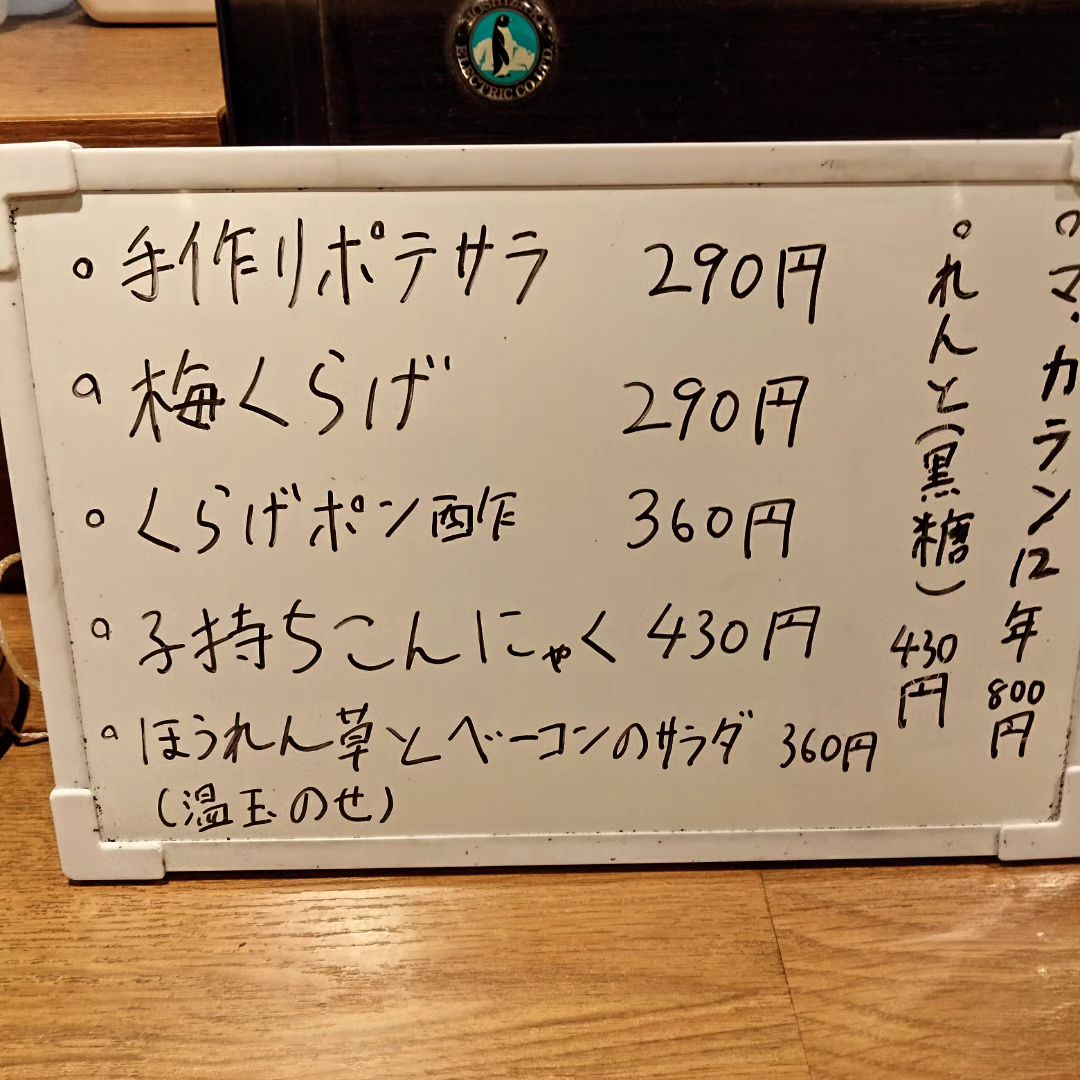 HOSHIZAKI ELECTRIC CO.LTD.
。手作りポテサラ 290円
。梅くらげ 290円
。くらげポン酢 360円
。子持ちこんにゃく 430円
。ほうれん草とベーコンのサラダ 360円
(温玉のせ)
。マッカラン12年 800円
。れんと(黒糖) 430円